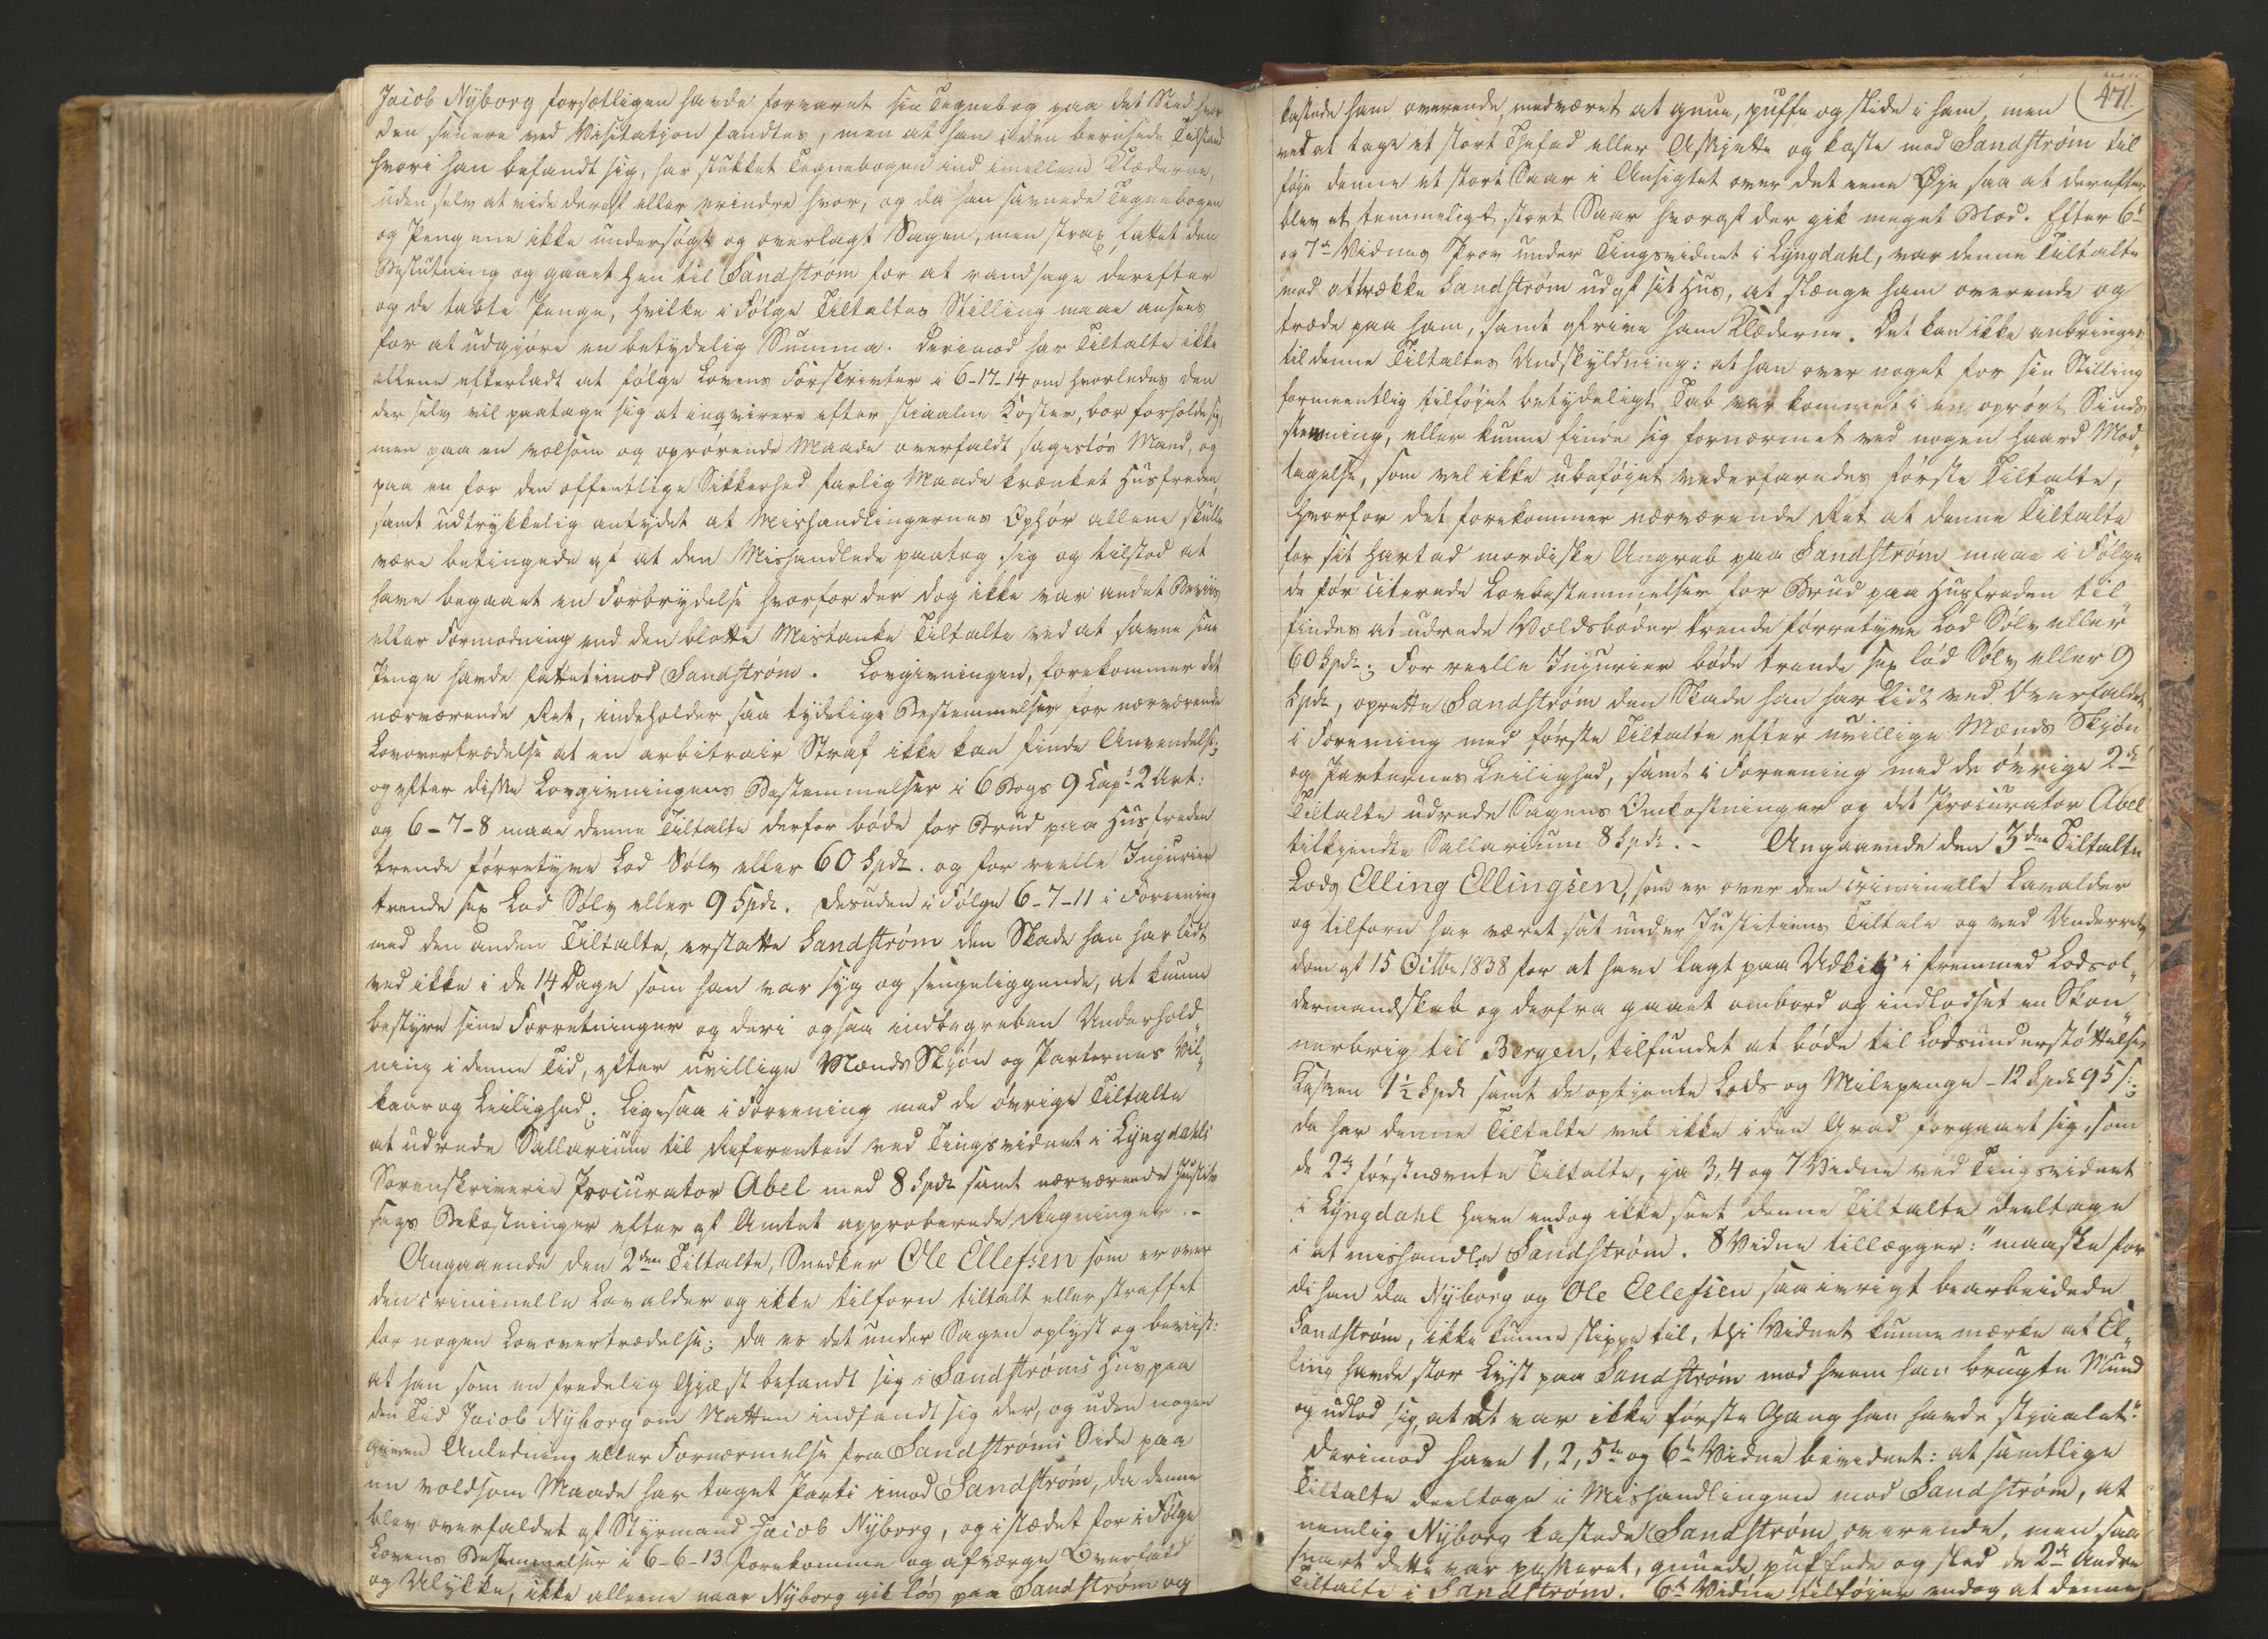 Jacob Nÿborg forsætligen havde forvaret sin Tegnebog paa det Sted hvor
den senere ved Visitatjon fandtes, men at han i den berusede Tilstand
hvori han befandt sig, har stukket Tegnebogen ind imellem Klæderne,
uden selv at vide deraf eller erindre hvor, og da han savnede Tegnebogen
og Pengene ikke undersøgt og overlagt Sagen, men strax fattet den
Beslutning og gaaet hen til Sandstrøm for at randsage derefter
og de tabte Penge, hvilke i Følge Tiltaltes Stilling maae ansees
for at udgjøre en betydelig Summa. Derimod har Tiltalte ikke
allene efterladt at følge Lovens Forskrivter i 6-17-14 om hvorledes den
der selv vil paatage sig at inqvirere efter stiaalne Koster, bør forholde sig,
men paa en volsom og oprørende Maade overfaldt sagesløs Mand, og
paa en for den offentlige Sikkerhed farlig Maade krænket Husfreden,
samt udtrykkelig antydet at Mishandlingernes Ophør allene skulle
være betingede af at den Mishandlede paatog sig og tilstod at
have begaaet en Forbrydelse hvorfor der dog ikke var andet Beviis
eller Formodning end den blotte Mistanke Tiltalte ved at savne sine
Penge havde fattet imod Sandstrøm. Lovgivningen, forekommer det
nærværende Ret, indeholder saa tydelige Bestemmelser for nærværende
Lovovertrædelse at en arbitrair Straf ikke kan finde Anvendelse;
og efter disse Lovgivningens Bestemmelser i 6 Bogs 9 Capt 2 Art:
og 6-7-8 maae denne Tiltalte derfor bøde for Brud paa Husfreden
trende førretyve Lod Sølv eller 60 Spd. og for reelle Injurier
trende sex Lod Sølv eller 9 Spd. Desuden i Følge 6-7-11 i Forening
med den anden Tiltalte, erstatte Sandstrøm den Skade han har lidt
ved ikke i de 14 Dage som han var syg og sengeliggende, at kunne
bestyre sine Forretninger og deri ogsaa indbegreben Underhold„
ning i denne Tid, efter uvillige Mænds Skjøn og Parternes Vil„
kaar og Leilighed. Ligesaa i Forening med de øvrige Tiltalte
at udrede Sallarium til Referenten ved Tingsvidnet i Lÿngdahls
Sorenskriverie Procurator Abel med 8 Spd. samt nærværende Justits
sags Bekostninger efter af Amtet approberede Regninger.-
Angaaende den 2den Tiltalte, Snedker Ole Ellefsen som er over
den criminelle Lavalder og ikke tilforn tiltalt eller straffet
for nogen Lovovertrædelse; da er det under Sagen oplyst og beviist:
at han som en fredelig Gjæst befandt sig i Sandstrøms Hus paa
den Tid Jacob Nÿborg om Natten indfandt sig der, og uden nogen
given Anledning eller Fornærmelse fra Sandstrøms Side paa
en voldsom Maade har taget Parti imod Sandstrøm, da denne
blev overfaldet af Styrmand Jacob Nÿborg, og istædet for i Følge
Lovens Bestemmelser i 6-6-13 forekomme og afværge Overfald
og Ulykke, ikke alleene naar Nÿborg gik løs paa Sandstrøm og
471.
kastede ham overende, medværet at gnue, puffe og slide i ham, men
ved at tage et stort Thefad eller Asjette og kaste mod Sandstrøm til„
føje denne et stort Saar i Ansigtet over det eene Øje saa at derefter
blev et temmeligt stort Saar hvoraf der gik meget Blod. Efter 6te
og 7de Vidnes Prov under Tingsvidnet i Lÿngdahl, var denne Tiltalte
med at trække Sandstrøm ud af sit Hus, at slænge ham overende og
træde paa ham, samt afrive ham Klæderne. Det kan ikke anbringes
til denne Tiltaltes Undskyldning: at han over noget for sin Stilling
formeentlig tilføjet betydeligt Tab var kommet i en oprørt Sinds
stemning, eller kunne finde sig fornærmet ved nogen haard Mod„
tagelse, som vel ikke ubeføjet vederfaredes første Tiltalte,
hvorfor det forekommer nærværende Ret at denne Tiltalte
for sit hartad mordiske Angreb paa Sandstrøm maae i Følge
de før citerede Lovbestemmelser for Brud paa Husfreden til„
findes at udrede Voldsbøder trende førretyve Lod Sølv eller
60 Spd.; For reelle Injurier bøde trende sex lod Sølv eller 9
Spd., oprette Sandstrøm den Skade han har lidt ved Overfaldet
i Forening med første Tiltalte efter uvillige Mænds Skjøn
og Parternes Leilighed, samt i Foreening med de øvrige 2de
Tiltalte udrede Sagens Omkostninger og det Procurator Abel
tilkjendte Sallarium 8 Spd..- Angaaende den 3die Tiltalte
Lods Elling Ellingsen, som er over den criminelle Lavalder
og tilforn har været sat under Justitiens Tiltale og ved Underrets
dom af 15 Octbr 1838 for at have lagt paa Udkig i fremmed Lodsol„
dermandskab og derfra gaaet ombord og indlodset en Skon„
nerbrig til Bergen, tilfundet at bøde til Lodsunderstøttelses
Kassen 1½ Spd samt de optjente Lods og Milepenge - 12 Spd 95 s:;
da har denne Tiltalte vel ikke i den Grad forgaaet sig, som
de 2de førstnævnte Tiltalte, ja 3, 4 og 7 Vidne ved Tingsvidnet
i Lÿngdahl have endog ikke seet denne Tiltalte deeltage
i at mishandle Sandstrøm. 8 Vidne tillægger: "maaske for
di han da Nÿborg og Ole Ellefsen saa ivrigt bearbeidede
Sandstrøm, ikke kunne slippe til, thi Vidnet kunne mærke at El„
ling havde stor Lyst paa Sandstrøm mod hvem han brugte Mund
og udlod sig, at det var ikke første Gang han havde stjaalet."
Derimod have 1, 2, 5te og 6te Vidne bevidnet: at samtlige
Tiltalte deeltoge i Mishandlingen mod Sandstrøm, at
nemlig Nÿborg kastede Sandstrøm overende, men saa
snart dette var passeret, gnuede, puffede og sled de 2de andre
Tiltalte i Sandstrøm. 6te Vidne tilføjer endog at denne